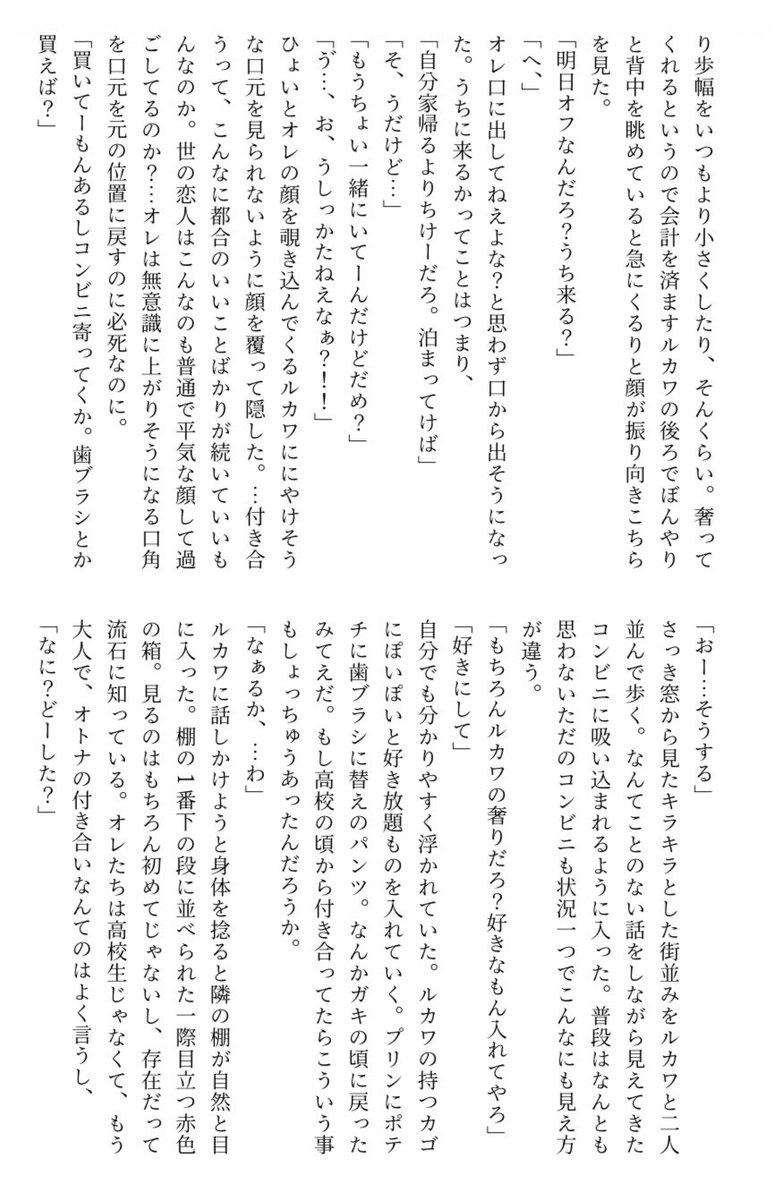 り歩幅をいつもより小さくしたり、そんくらい。奢って
くれるというので会計を済ますルカワの後ろでぼんやり
と背中を眺めていると急にくるりと顔が振り向きこちら
を見た。
「明日オフなんだろ？うち来る？」
「へ、」
オレ口に出してねえよな？と思わず口から出そうになっ
た。うちに来るかってことはつまり、
「自分家帰るよりちけーだろ。泊まってけば」
「そ、うだけど…」
「もうちょい一緒にいてーんだけどだめ？」
「ゔ…、お、うしっかたねえなぁ？！！」
ひょいとオレの顔を覗き込んでくるルカワににやけそう
な口元を見られないように顔を覆って隠した。…付き合
うって、こんなに都合のいいことばかりが続いていいも
んなのか。世の恋人はこんなのも普通で平気な顔して過
ごしてるのか？…オレは無意識に上がりそうになる口角
を口元を元の位置に戻すのに必死なのに。
「買いてーもんあるしコンビニ寄ってくか。歯ブラシとか
買えば？」
「おー…そうする」
さっき窓から見たキラキラとした街並みをルカワと二人
並んで歩く。なんてことのない話をしながら見えてきた
コンビニに吸い込まれるように入った。普段はなんとも
思わないただのコンビニも状況一つでこんなにも見え方
が違う。
「もちろんルカワの奢りだろ？好きなもん入れてやろ」
「好きにして」
自分でも分かりやすく浮かれていた。ルカワの持つカゴ
にぽいぽいと好き放題ものを入れていく。プリンにポテ
チに歯ブラシに替えのパンツ。なんかガキの頃に戻った
みてえだ。もし高校の頃から付き合ってたらこういう事
もしょっちゅうあったんだろうか。
「なぁるか、…わ」
ルカワに話しかけようと身体を捻ると隣の棚が自然と目
に入った。棚の1番下の段に並べられた一際目立つ赤色
の箱。見るのはもちろん初めてじゃないし、存在だって
流石に知っている。オレたちは高校生じゃなくて、もう
大人で、オトナの付き合いなんてのはよく言うし、
「なに？どーした？」